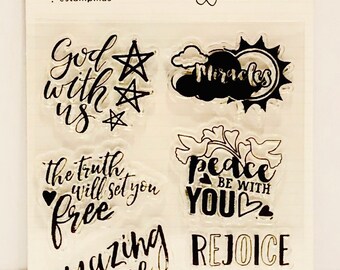 God
with
us
Miracles
the truth
will set you
free
peace
BE WITH
YOU
REJOICE